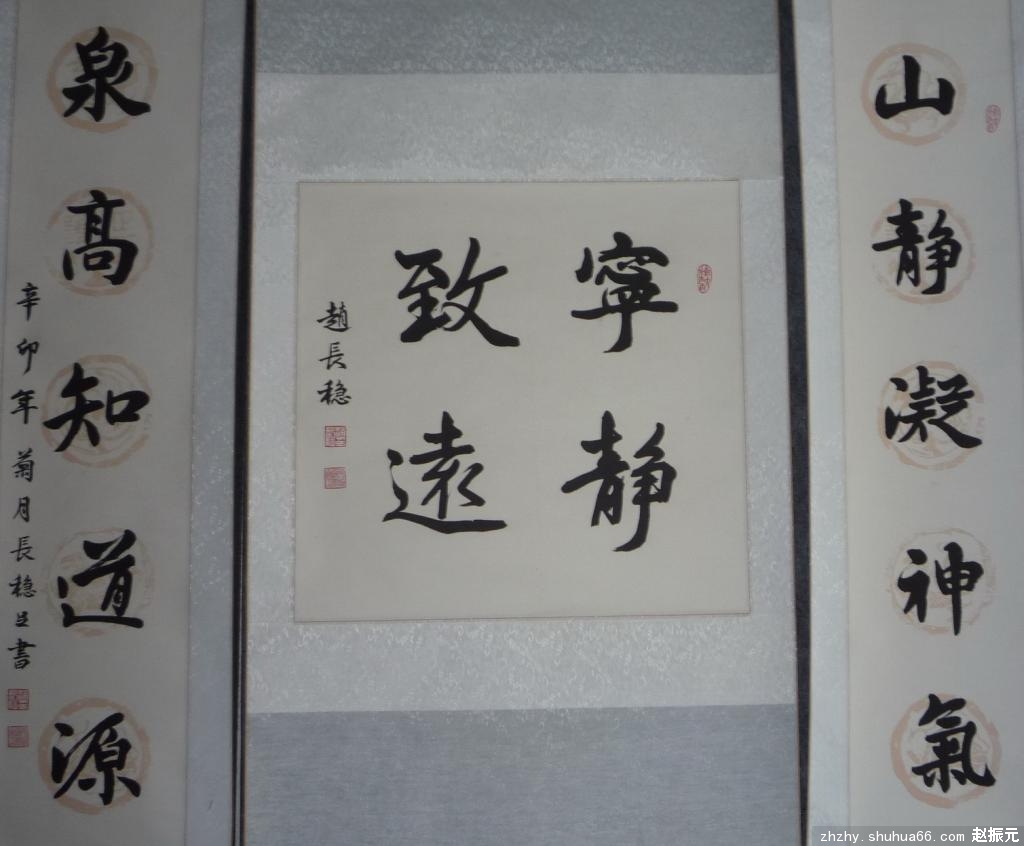 山靜凝神氣
寧靜
致遠
趙長穩
泉高知道源
辛卯年菊月長穩
書
zhzhy.shuhua66.com 赵振元